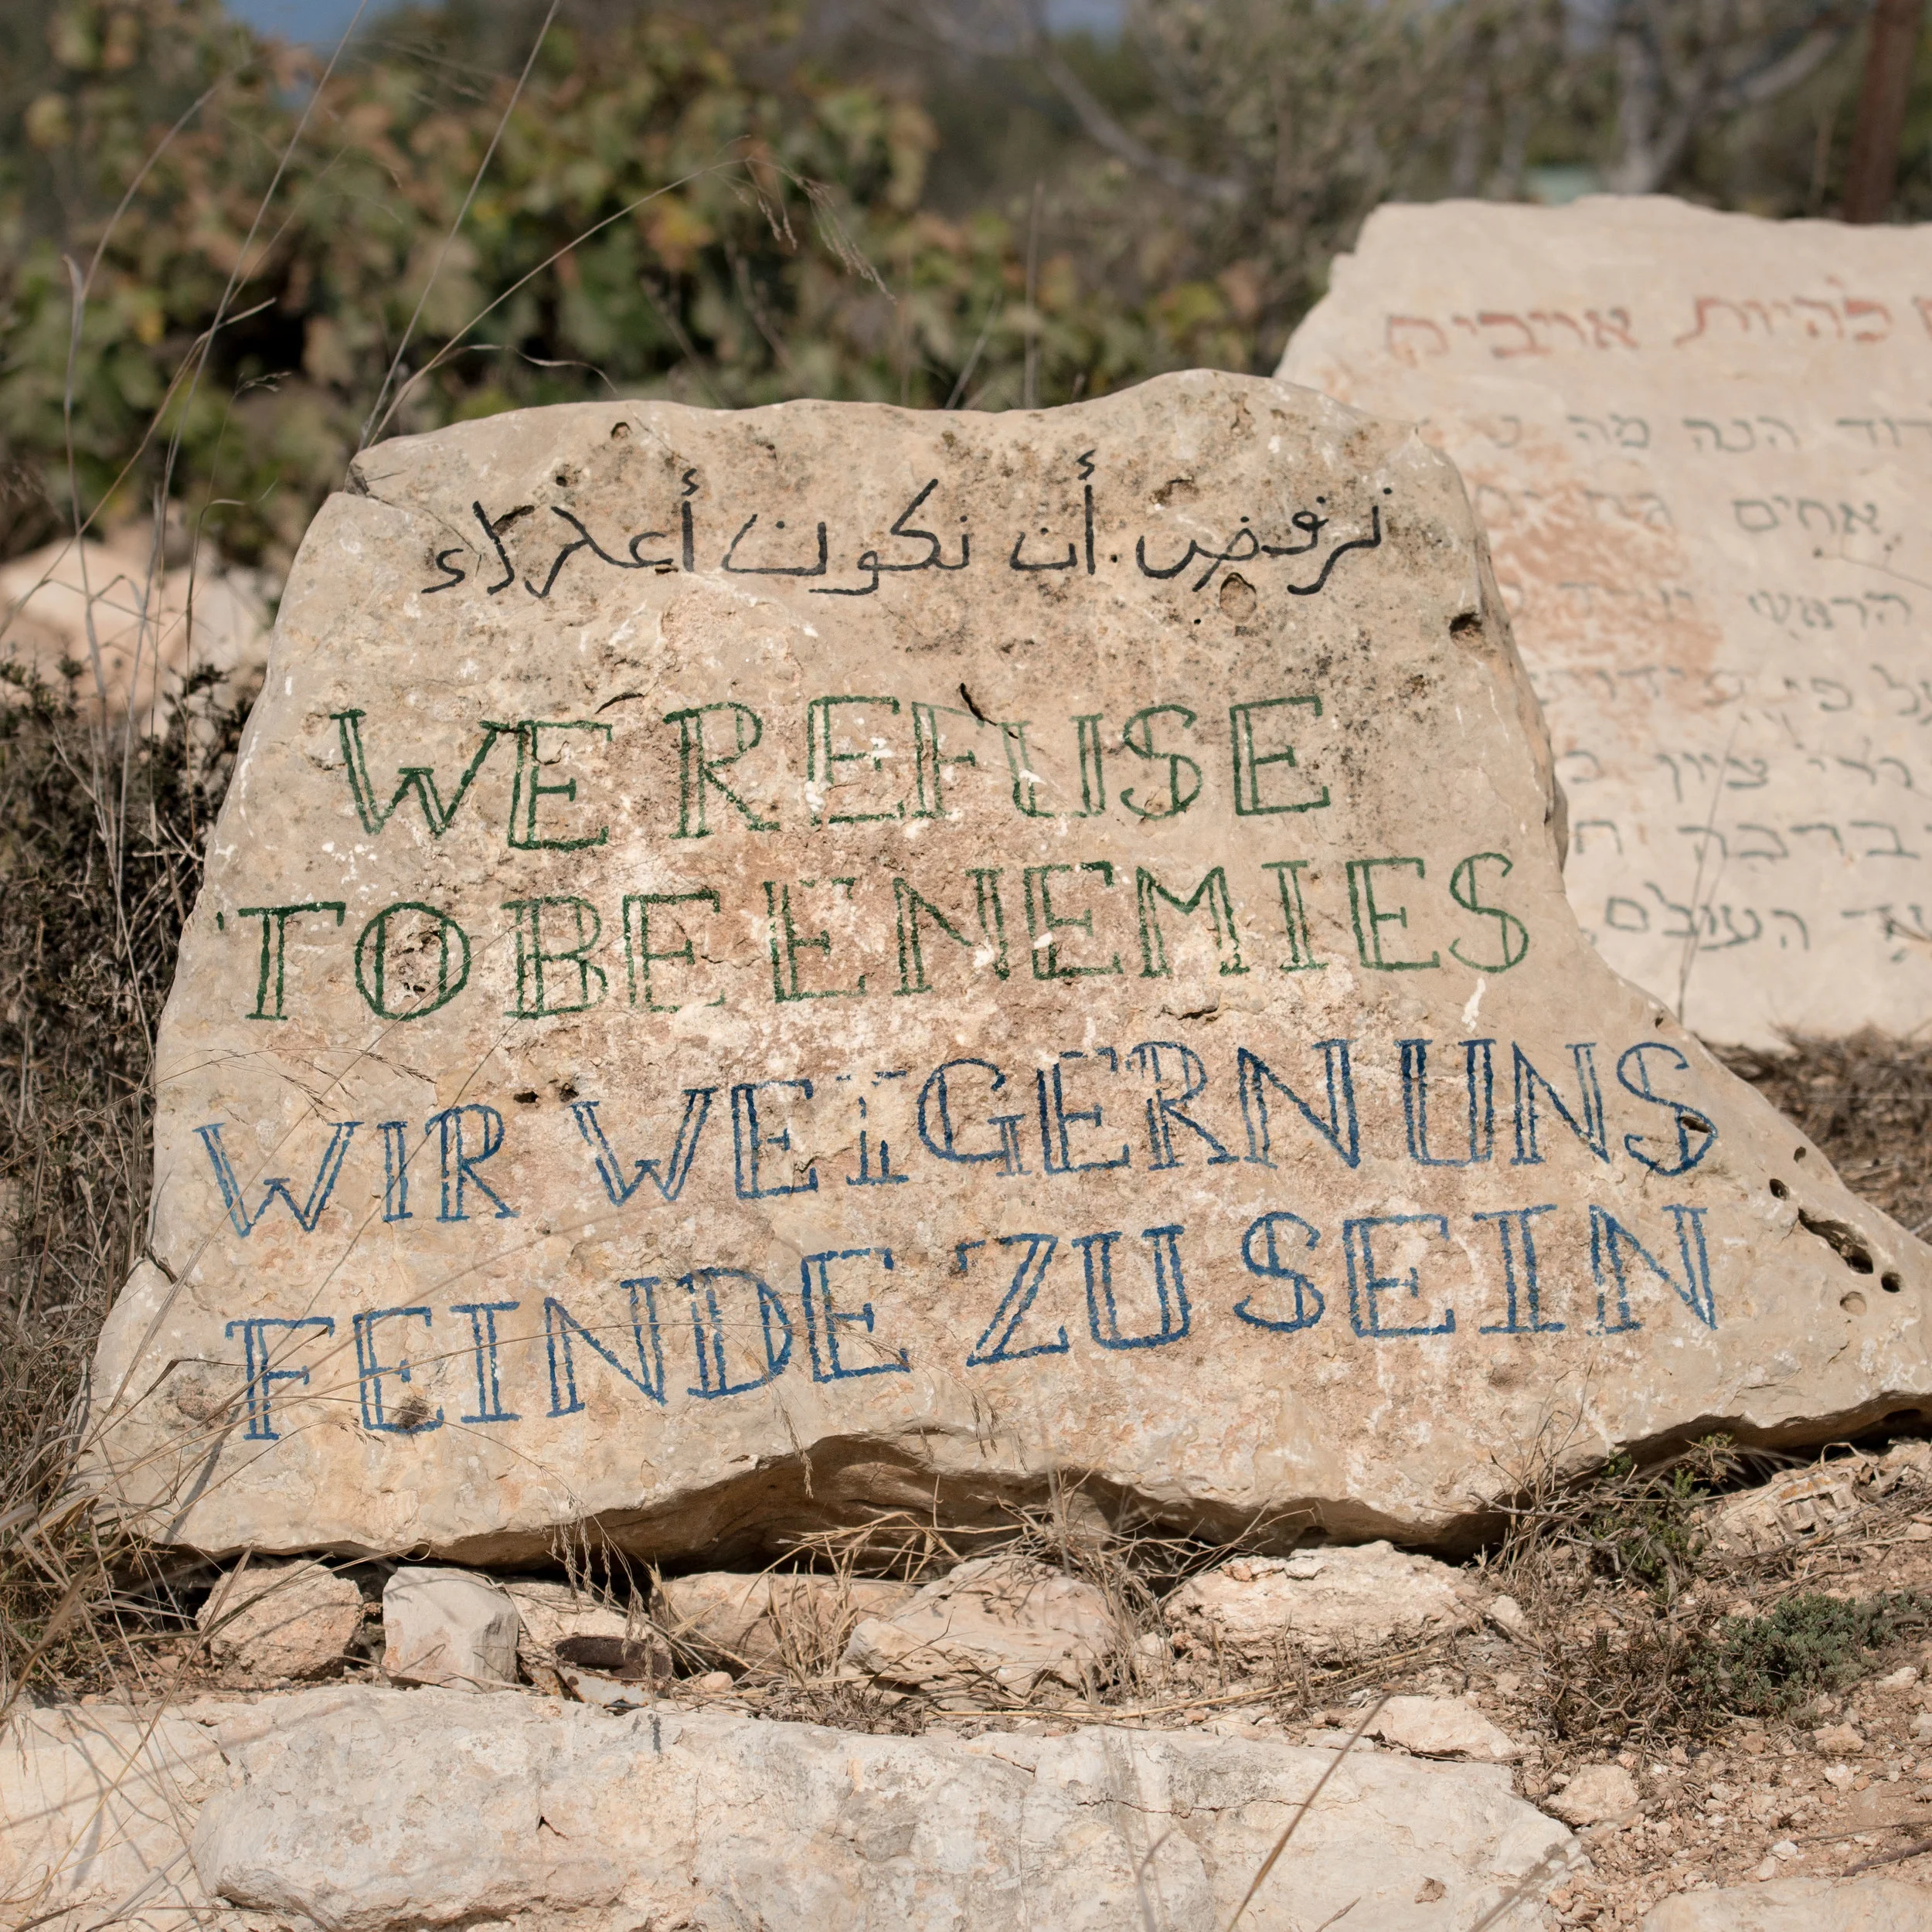 نرفض أن نكون أعداء
WE REFUSE
TO BE ENEMIES
WIR WEIGERN UNS
FEINDE ZU SEIN
להיות אויבים
הנה מה
אחים
הראש
ציון
העולם